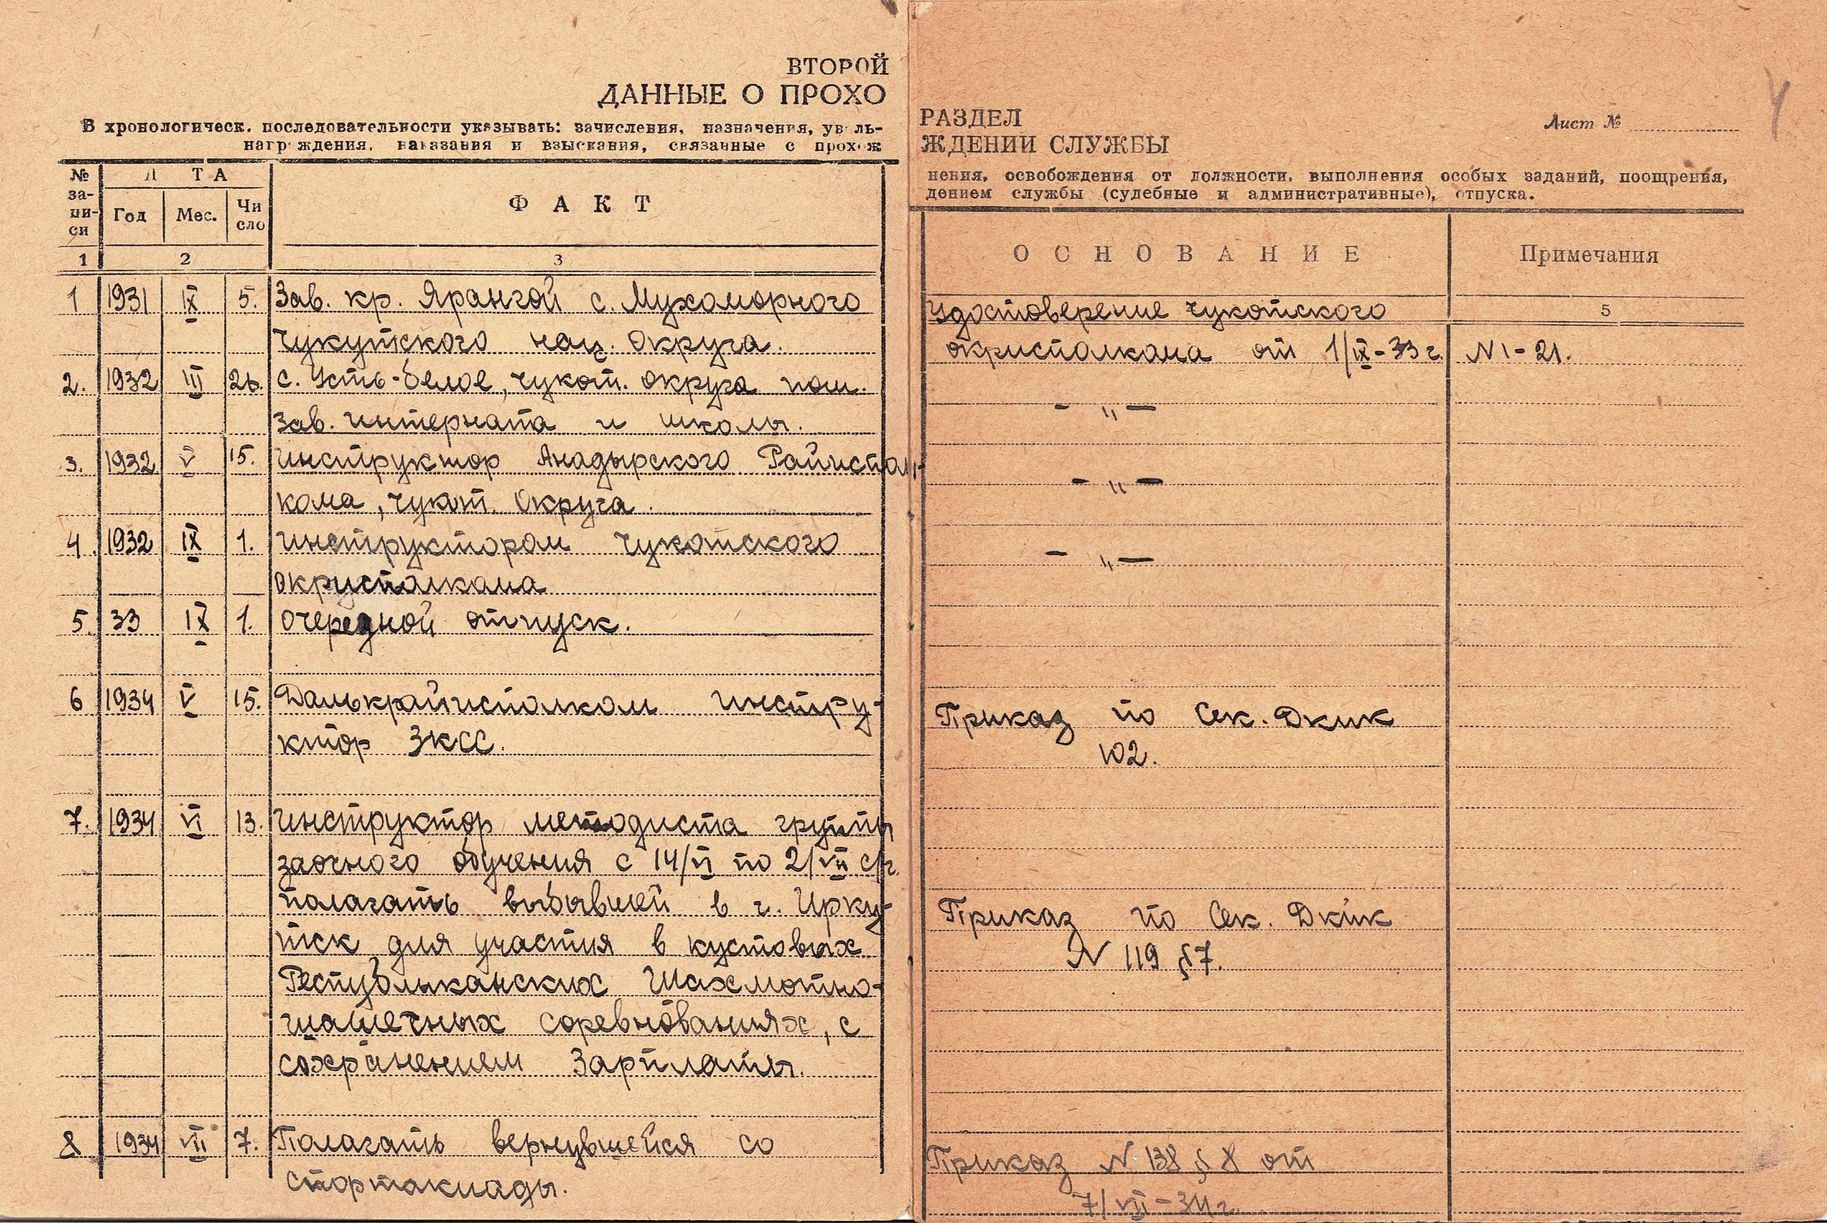 ВТОРОЙ
ДАННЫЕ О ПРОХО
В хронологическ. последовательности указывать: зачисления, назначения, уволь-
награждения, наказания и взыскания, связанные с прохож
№ за-пи-си
ДАТА
Год
Мес.
Чи сло
ФАКТ
1
2
3
1 1931 IX 5. Зав. кр. Ярангой с. Мухоморного
Чукутского нац. округа.
2. 1932 III 26. с. Усть-Белое, Чукот. округа пом.
зав. интерната и школы.
3. 1932 V 15. Инструктор Анадырского Райиспол-
кома, Чукот. Округа.
4. 1932 IX 1. Инструктором Чукотского
окрисполкома
5. 33 IX 1. Очередной отпуск.
6 1934 V 15. Далькрайисполком инстру-
ктор ЗКСС.
7. 1934 VI 13. Инструктор методиста группы
заочного обучения с 14/VI по 2/VII с/г.
полагать выбывшей в г. Ирку-
тск для участия в кустовых
Республиканских Шахмотно-
шашечных соревнованиях, с
сохранением Зарплаты.
8 1934 VII 7. Полагать вернувшейся со
спортакиады.
РАЗДЕЛ
ЖДЕНИИ СЛУЖБЫ
Лист №
4
нения, освобождения от должности, выполнения особых заданий, поощрения,
дением службы (судебные и административные), отпуска.
ОСНОВАНИЕ
Примечания
Удостоверение Чукотского
5
окрисполкома от 1/IX-33 г. N 1-21.
- „ -
- „ -
- „ -
Приказ по Сек. Дкик
102.
Приказ по Сек. Дкик
N 119 §7.
Приказ N 138 § 8 от
7/VII-34 г.